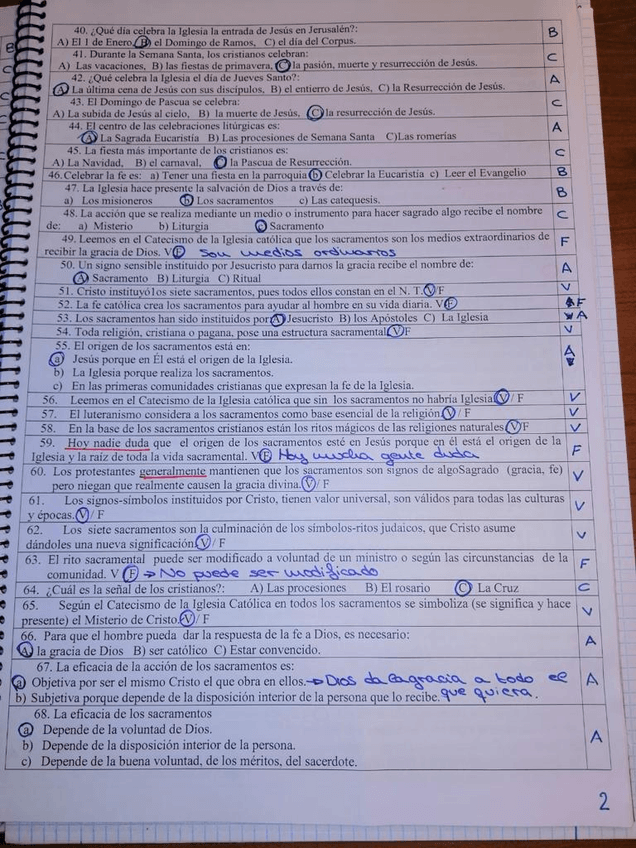 40. ¿Qué día celebra la Iglesia la entrada de Jesús en Jerusalén?:
A) El 1 de Enero, B) el Domingo de Ramos, C) el día del Corpus. B
41. Durante la Semana Santa, los cristianos celebran:
A) Las vacaciones, B) las fiestas de primavera, C) la pasión, muerte y resurrección de Jesús. C
42. ¿Qué celebra la Iglesia el día de Jueves Santo?:
A) La última cena de Jesús con sus discípulos, B) El entierro de Jesús, C) la Resurrección de Jesús. A
43. El Domingo de Pascua se celebra:
A) La subida de Jesús al cielo, B) la muerte de Jesús, C) la resurrección de Jesús. C
44. El centro de las celebraciones litúrgicas es:
A) La Sagrada Eucaristía B) Las procesiones de Semana Santa C)Las romerías A
45. La fiesta más importante de los cristianos es:
A) La Navidad, B) el carnaval, C) la Pascua de Resurrección. C
46.Celebrar la fe es: a) Tener una fiesta en la parroquia b) Celebrar la Eucaristía c) Leer el Evangelio B
47. La Iglesia hace presente la salvación de Dios a través de:
a) Los misioneros b) Los sacramentos c) Las catequesis. B
48. La acción que se realiza mediante un medio o instrumento para hacer sagrado algo recibe el nombre
de: a) Misterio b) Liturgia c) Sacramento C
49. Leemos en el Catecismo de la Iglesia católica que los sacramentos son los medios extraordinarios de
recibir la gracia de Dios. V F Son medios ordinarios F
50. Un signo sensible instituido por Jesucristo para darnos la gracia recibe el nombre de:
A) Sacramento B) Liturgia C) Ritual A
51. Cristo instituyó1os siete sacramentos, pues todos ellos constan en el N. T. V/F V
52. La fe católica crea los sacramentos para ayudar al hombre en su vida diaria. V F F
53. Los sacramentos han sido instituidos por A) Jesucristo B) los Apóstoles C) La Iglesia A
54. Toda religión, cristiana o pagana, pose una estructura sacramental. V/F V
55. El origen de los sacramentos está en:
a) Jesús porque en Él está el origen de la Iglesia. A
b) La Iglesia porque realiza los sacramentos.
c) En las primeras comunidades cristianas que expresan la fe de la Iglesia.
56. Leemos en el Catecismo de la Iglesia católica que sin los sacramentos no habría Iglesia. V / F V
57. El luteranismo considera a los sacramentos como base esencial de la religión. V / F V
58. En la base de los sacramentos cristianos están los ritos mágicos de las religiones naturales. V/F V
59. Hoy nadie duda que el origen de los sacramentos esté en Jesús porque en él está el origen de la
Iglesia y la raíz de toda la vida sacramental. V F Hay mucha gente duda F
60. Los protestantes generalmente mantienen que los sacramentos son signos de algoSagrado (gracia, fe)
pero niegan que realmente causen la gracia divina. V / F V
61. Los signos-símbolos instituidos por Cristo, tienen valor universal, son válidos para todas las culturas
y épocas. V / F V
62. Los siete sacramentos son la culminación de los símbolos-ritos judaicos, que Cristo asume
dándoles una nueva significación. V / F V
63. El rito sacramental puede ser modificado a voluntad de un ministro o según las circunstancias de la
comunidad. V / F → No puede ser modificado F
64. ¿Cuál es la señal de los cristianos?: A) Las procesiones B) El rosario C) La Cruz C
65. Según el Catecismo de la Iglesia Católica en todos los sacramentos se simboliza (se significa y hace
presente) el Misterio de Cristo. V / F V
66. Para que el hombre pueda dar la respuesta de la fe a Dios, es necesario:
A) la gracia de Dios B) ser católico C) Estar convencido. A
67. La eficacia de la acción de los sacramentos es:
a) Objetiva por ser el mismo Cristo el que obra en ellos. → Dios da la gracia a todo el A
b) Subjetiva porque depende de la disposición interior de la persona que lo recibe. que quiera.
68. La eficacia de los sacramentos
a) Depende de la voluntad de Dios.
b) Depende de la disposición interior de la persona. A
c) Depende de la buena voluntad, de los méritos, del sacerdote.
2